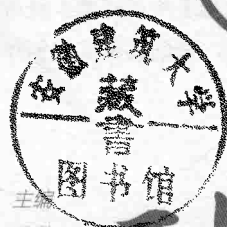 安徽建筑大学
藏書
图书馆
主编